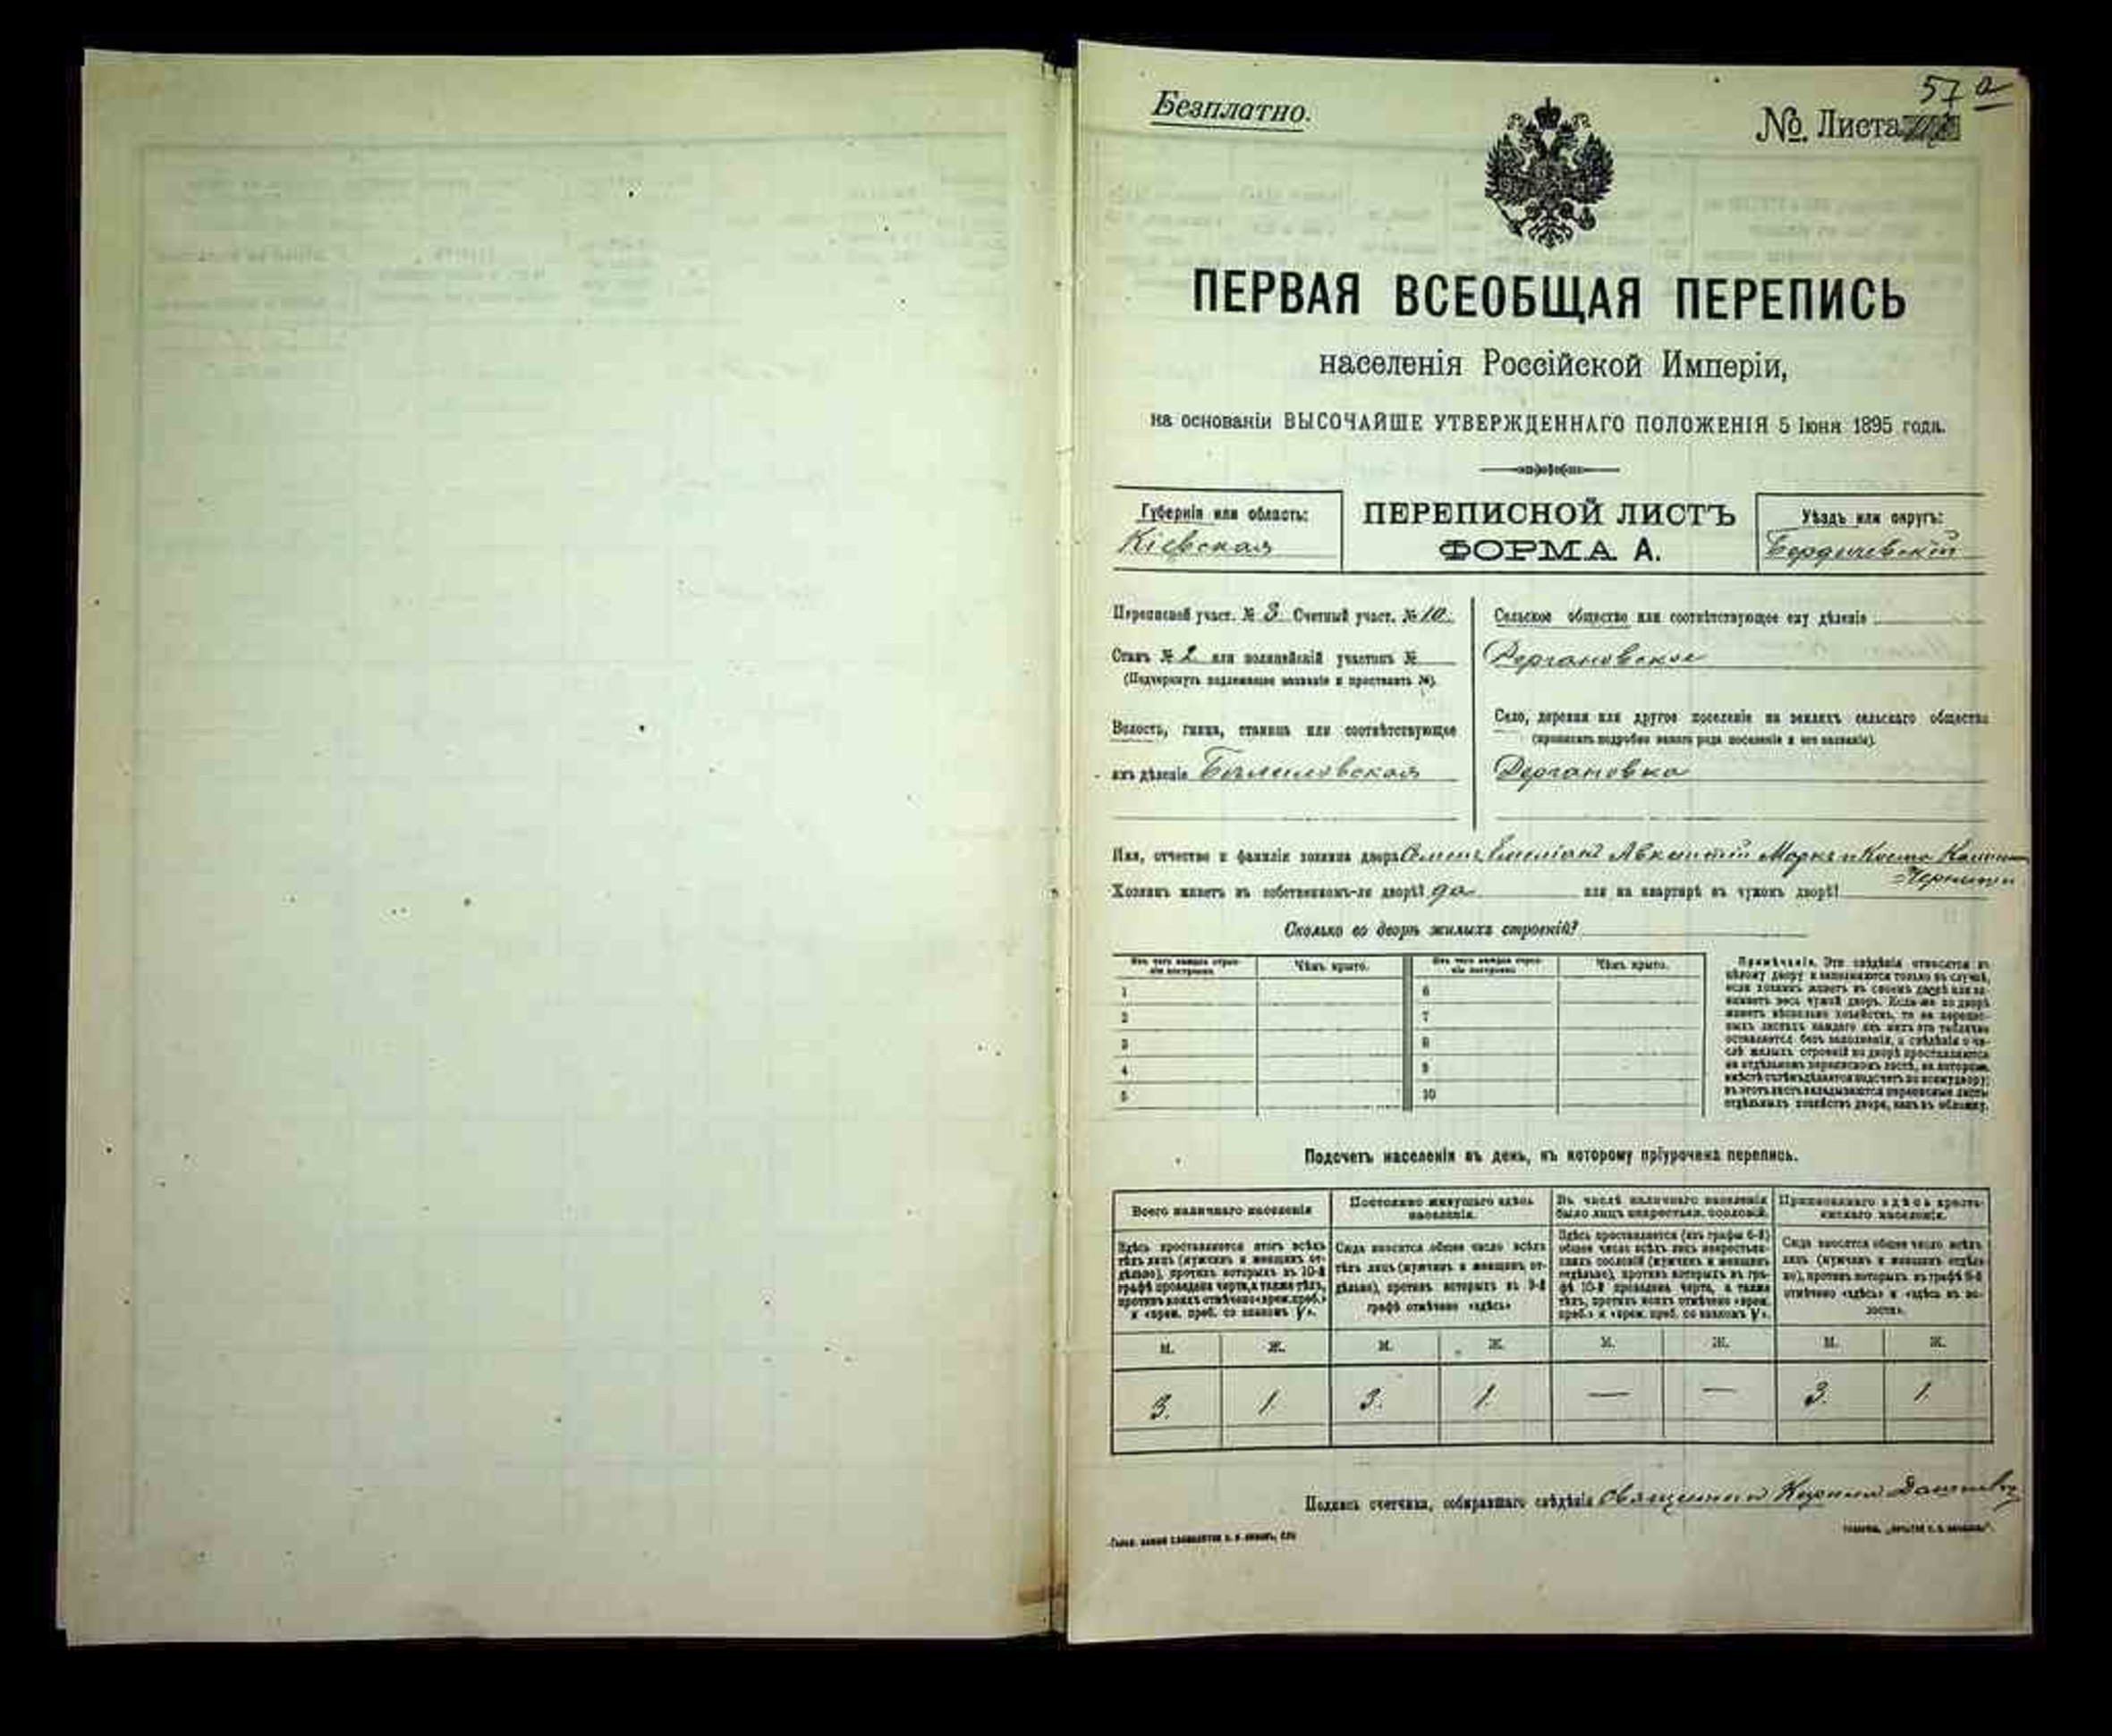 57 а
Безплатно.
№ Листа
ПЕРВАЯ ВСЕОБЩАЯ ПЕРЕПИСЬ
населенія Россійской Имперіи,
на основаніи ВЫСОЧАЙШЕ УТВЕРЖДЕННАГО ПОЛОЖЕНІЯ 5 Іюня 1895 года.
Губернія или область:
Кіевская
ПЕРЕПИСНОЙ ЛИСТЪ
ФОРМА А.
Уѣздъ или округъ:
Бердичевскій
Переписной участ. № 3 Счетный участ. № 10
Станъ № 2 или полицейскій участокъ №
(Подчеркнуть подлежащее названіе и проставить №).
Волость, гмина, станица или соотвѣтствующее
имъ дѣленіе
Сельское общество или соотвѣтствующее ему дѣленіе
Дергановское
Село, деревня или другое поселеніе на земляхъ сельскаго общества
(прописать подробно какого рода поселеніе и его названіе).
Дергановка
Имя, отчество и фамилія хозяина двора Маркъ и Косма
Хозяинъ живетъ въ собственномъ-ли дворѣ? да или на квартирѣ въ чужомъ дворѣ?
Сколько во дворѣ жилыхъ строеній?
Изъ чего каждое строе-
ніе построено
Чѣмъ крыто.
Изъ чего каждое строе-
ніе построено
Чѣмъ крыто.
1 6
2 7
3 8
4 9
5 10
Примѣчаніе. Эти свѣдѣнія относятся къ
цѣлому двору и заполняются только въ случаѣ,
если хозяинъ живетъ въ своемъ дворѣ или за-
нимаетъ весь чужой дворъ. Если-же во дворѣ
живетъ нѣсколько хозяйствъ, то на перепис-
ныхъ листахъ каждаго изъ нихъ эта табличка
оставляется безъ заполненія, а свѣдѣнія о чи-
слѣ жилыхъ строеній во дворѣ проставляются
на отдѣльномъ переписномъ листѣ, на которомъ
вмѣстѣ съ тѣмъ дѣлается подсчетъ по всему двору;
въ этотъ листъ вкладываются переписные листы
отдѣльныхъ хозяйствъ двора, какъ въ обложку.
Подсчетъ населенія въ день, къ которому пріурочена перепись.
Всего наличнаго населенія
Постоянно живущаго здѣсь
населенія.
Въ числѣ наличнаго населенія
было лицъ некрестьян. сословій.
Приписаннаго здѣсь кресть-
янскаго населенія.
Здѣсь проставляется итогъ всѣхъ
тѣхъ лицъ (мужчинъ и женщинъ от-
дѣльно), противъ которыхъ въ 10-й
графѣ проведена черта, а также тѣхъ,
противъ коихъ отмѣчено «врем. преб.»
и «врем. преб. со знакомъ V».
Сюда вносится общее число всѣхъ
тѣхъ лицъ (мужчинъ и женщинъ от-
дѣльно), противъ которыхъ въ 9-й
графѣ отмѣчено «здѣсь»
Здѣсь проставляется (изъ графы 6-й)
общее число всѣхъ лицъ некрестьян-
скихъ сословій (мужчинъ и женщинъ
отдѣльно), противъ которыхъ въ гра-
фѣ 10-й проведена черта, а также
тѣхъ, противъ коихъ отмѣчено «врем.
преб.» и «врем. преб. со знакомъ V».
Сюда вносится общее число всѣхъ
лицъ (мужчинъ и женщинъ отдѣль-
но), противъ которыхъ въ графѣ 8-й
отмѣчено «здѣсь» и «здѣсь въ во-
лости».
М. Ж. М. Ж. М. Ж. М. Ж.
3. 1. 3. 1. — — 3. 1.
Подпись счетчика, собиравшаго свѣдѣнія Священникъ